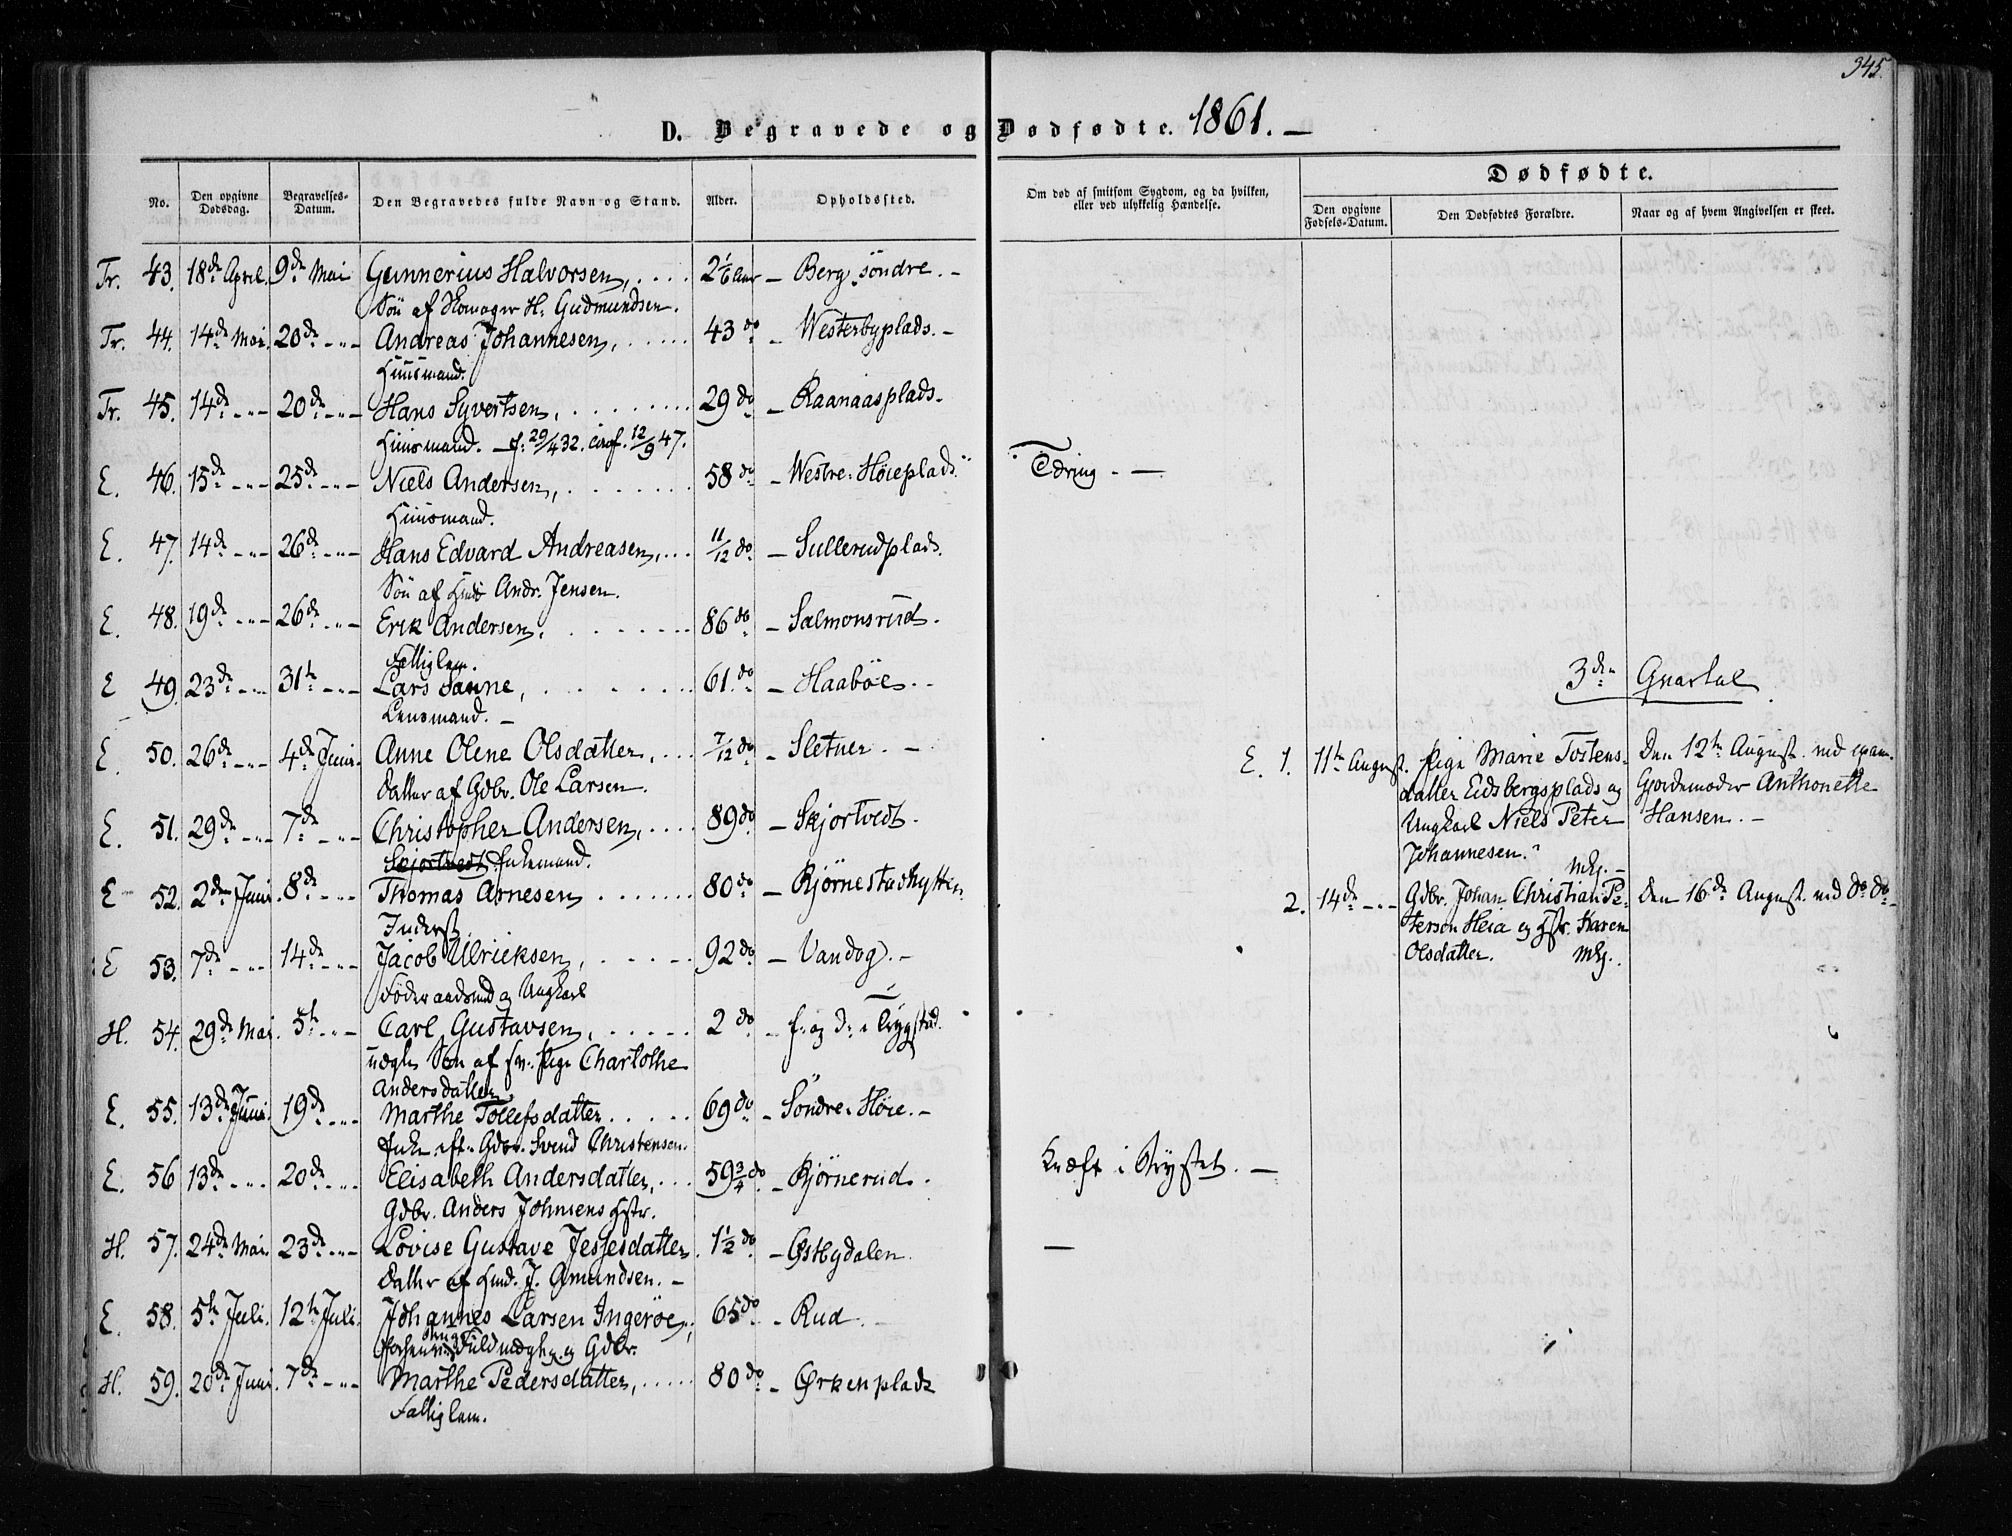 345.
D. Begravede og Dødfødte. 1861. —
No.
Den opgivne Dødsdag.
Begravelses-Datum.
Den Begravedes fulde Navn og Stand.
Alder.
Opholdssted.
Om død af smitsom Sygdom, og da hvilken, eller ved ulykkelig Hændelse.
Dødfødte.
Den opgivne Fødsels-Datum.
Den Dødfødtes Forældre.
Naar og af hvem Angivelsen er skeet.
Tr. 43. 18de April. 9de Mai Gunnerius Halvorsen, .... 2 1/6 Aar – Berg søndre. –
Søn af Skomager H. Gudmundsen.
Tr. 44. 14de Mai. 20de -"- Andreas Johannesen, ..... 43 do – Westerbyplads. –
Huusmand.
Tr. 45. 14de -"- 20de -"- Hans Syvertsen, ........ 29 do – Raanaasplads.
Huusmand. – f. 29/4 32. conf. 12/9 47.
E. 46. 15de -"- 25de -"- Niels Andersen, ....... 58 do – Westre Høieplads. Tæring. —
Huusmand.
E. 47. 14de -"- 26de -"- Hans Edvard Andreasen, ... 11/12 do – Sullerudplads.
Søn af Huus Andr. Jensen.
E. 48. 19de -"- 26de -"- Erik Andersen, ....... 86 do – Salmonsrud.
Fattiglem.
E 49. 23de -"- 31te -"- Lars Sanne, ....... 61 do – Haabøe. –
Lensmand. –
E. 50. 26de -"- 4de Juni. Anne Olene Olsdatter, ... 7/12 do – Sletner. –
Datter af Gdbr. Ole Larsen.
E. 51. 29de -"- 7de -"- Christopher Andersen, .... 89 do – Skjortvedt.
Skjortvedt, Enkemand.
E 52. 2den Juni. 8de -"- Thomas Arnesen ....... 80 do – Bjørnestadhytten.
Inderst.
E 53. 7de -"- 14de -"- Jacob Ulricksen, ..... 92 do – Vandog. –
Føderaadsmd og Ungkarl
H. 54. 29de Mai. 5te -"- Carl Gustavsen, ..... 2 do – f. og d. i Trygstad.
uægte Søn af Pige Charlothe
Andersdatter.
E. 55. 13de Juni. 19de -"- Marthe Tollefsdatter ..... 69 do – Søndre Høie. –
Enke eft. Gdbr. Svend Christensen.
E. 56 13de -"- 20de -"- Elisabeth Andersdatter, ... 59 3/4 do – Bjørnerud. Kræft i Brystet. —
Gdbr. Anders Johnsens Hstr.
H. 57. 24de Mai. 23de -"- Lovise Gustave Jessesdatter. 1 1/2 do – Østbydalen. —
Datter af Husmd. J. Amundsen. –
E. 58. 5te Juli. 12te Juli. Johannes Larsen Ingerøe, 65 do – Rud.
Fuldmægtig og Gdbr.
H. 59. 20de Juni. 7de -"- Marthe Pedersdatter, ..... 80 do – Ørkenplads
Fattiglem.
3die Qvartal
E. 1. 11te August. Pige Marie Tostens-
datter Eidsbergsplads og
Ungkarl Niels Peter
Johannesen."
Mkj. –
Den 12te August. ved exam.
Gjordemoder Anthonette
Hansen. –
2. 14de -"- Gdbr. Johan Christian Pe-
tersen Heia og Hstr. Karen
Olsdatter. Mkj.
Den 16de August. ved do do –